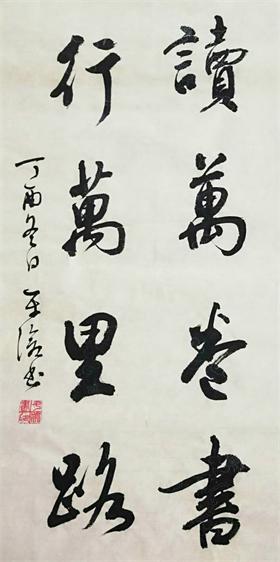 讀萬卷書
行萬里路
丁酉冬日
書